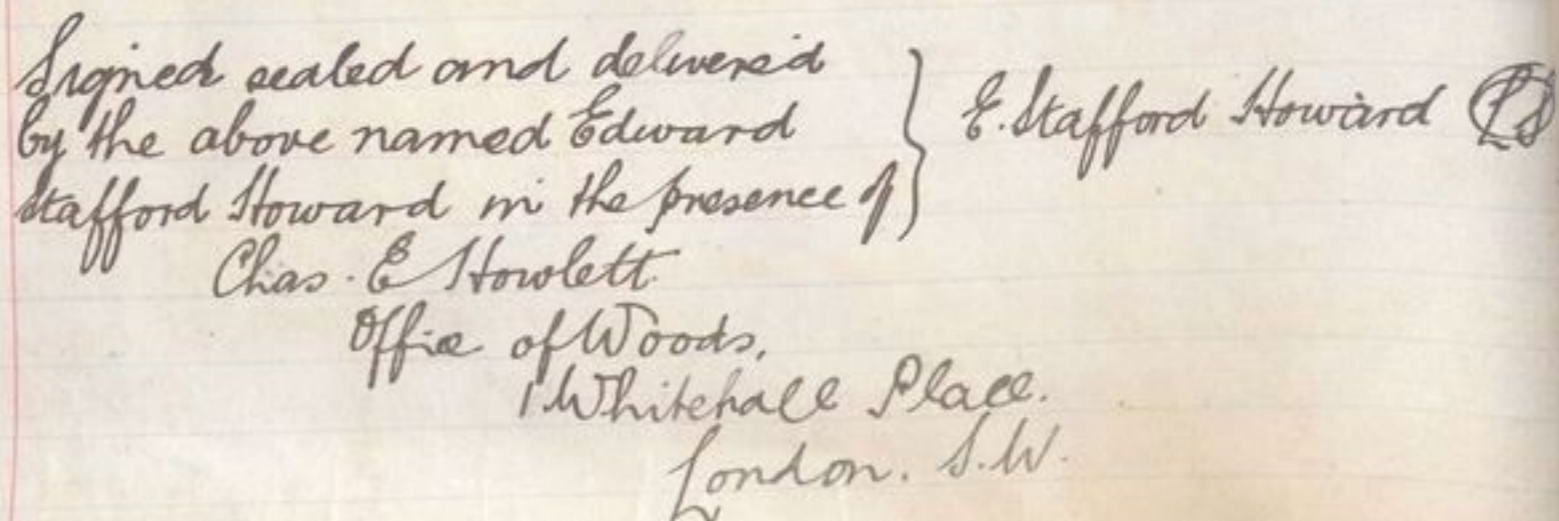 Signed sealed and delivered
by the above named Edward
Stafford Howard in the presence of } E. Stafford Howard LS
Chas. E Howlett
Office of Woods,
1 Whitehall Place.
London. S.W.